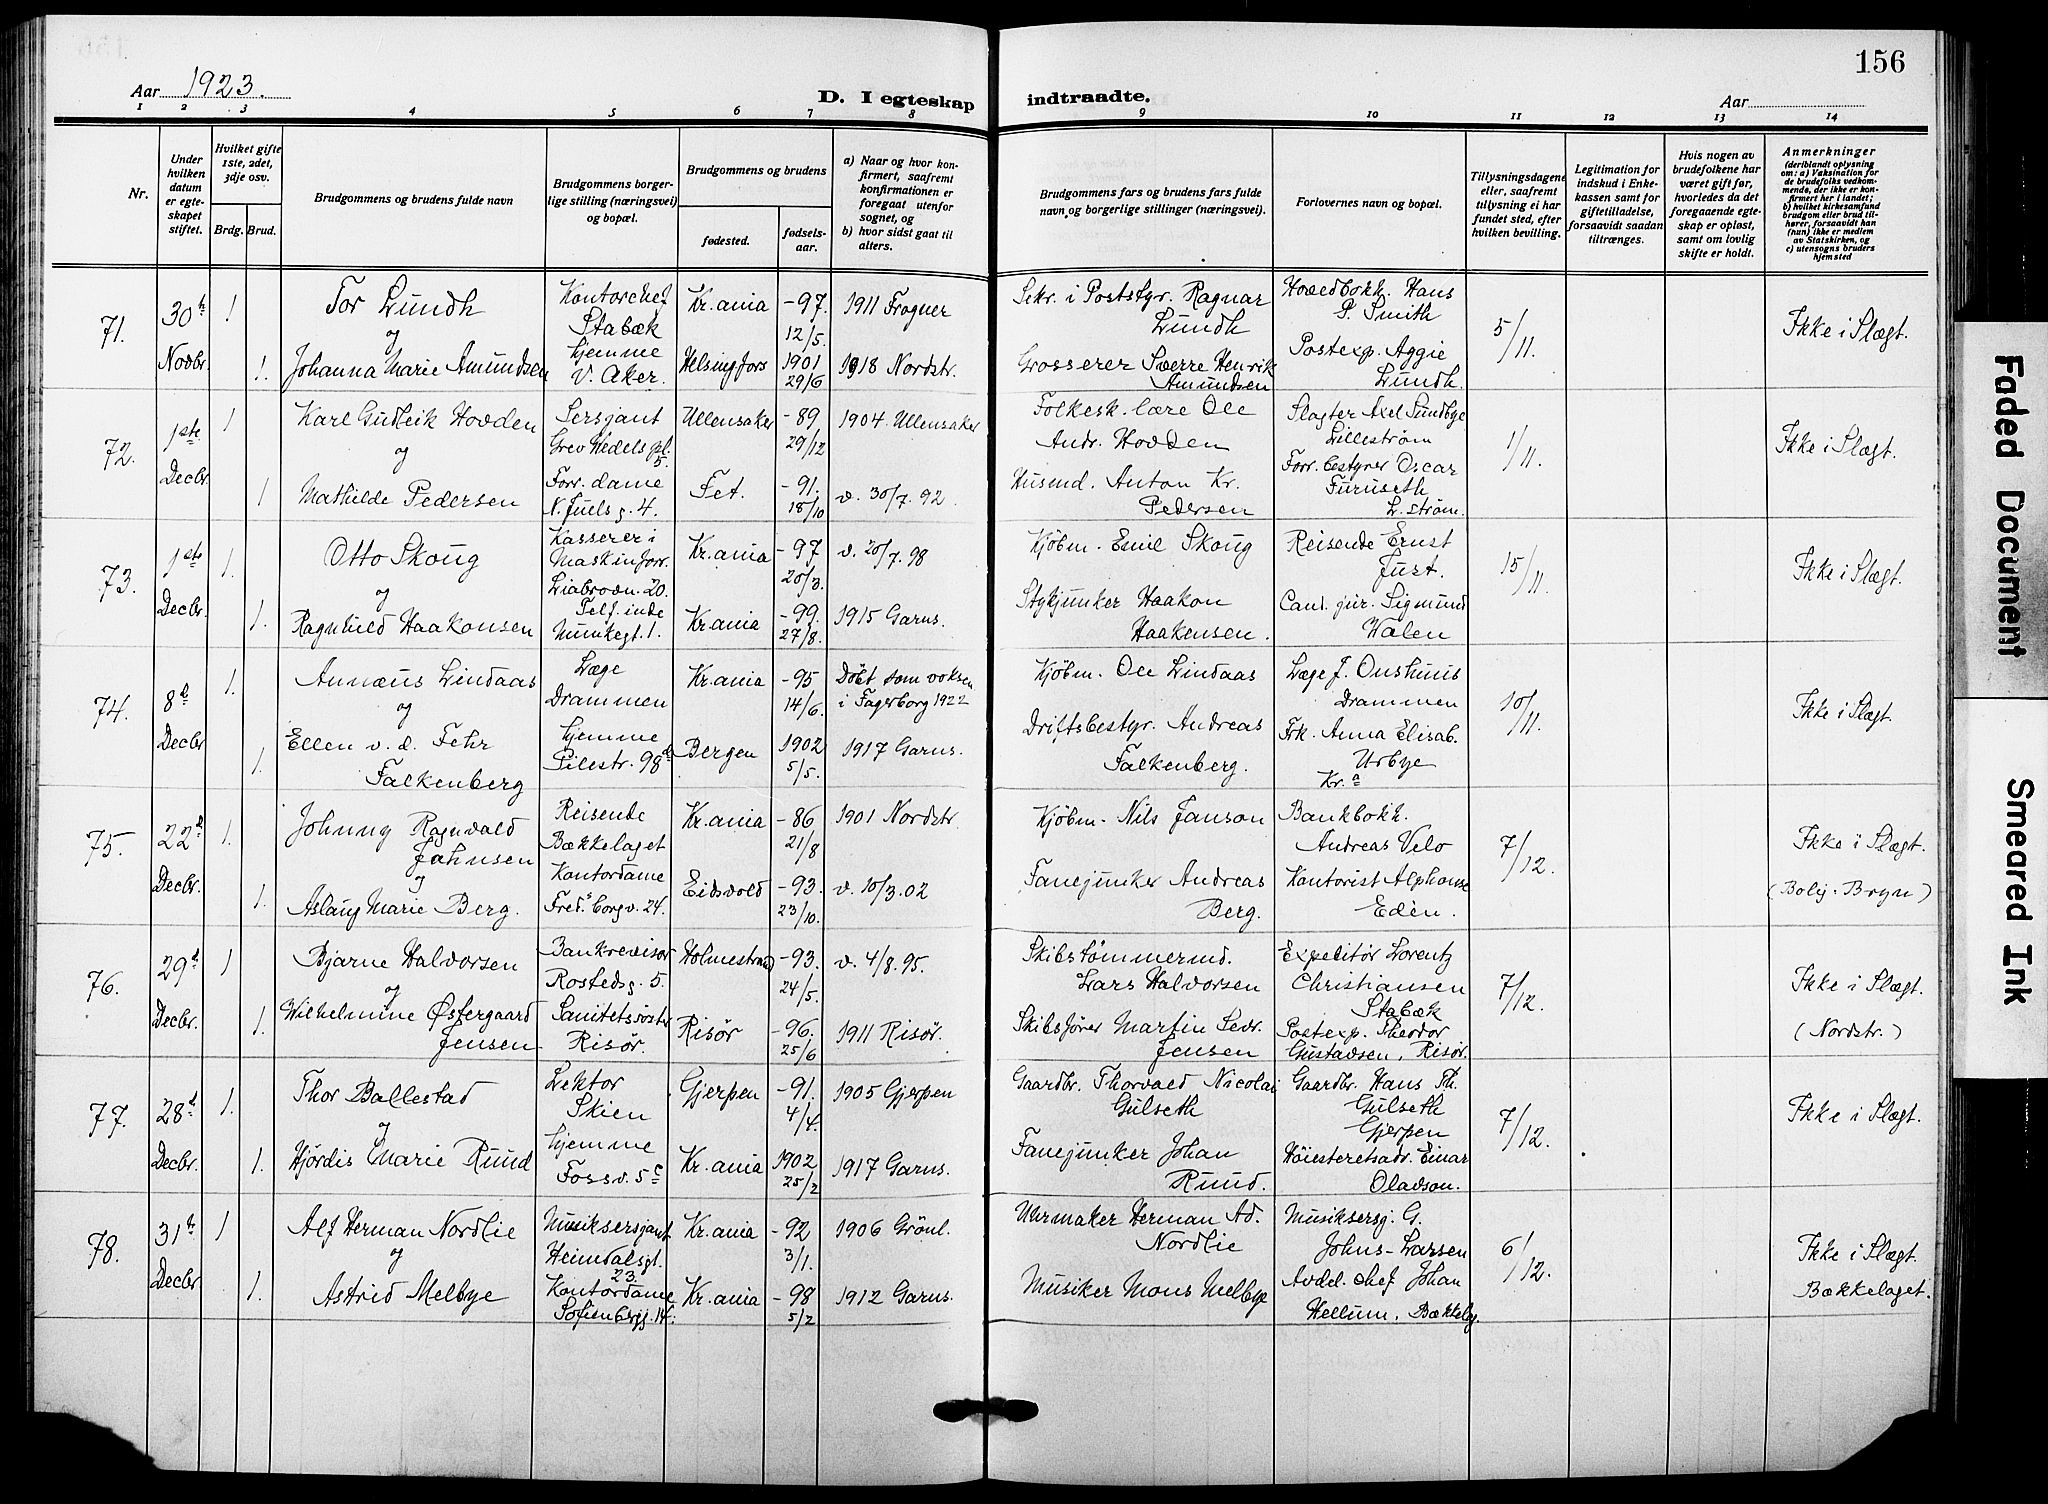 156
Aar 1923.
D. I egteskap indtraadte.
Aar
1 2 3 4 5 6 7 8 9 10 11 12 13 14
Nr.
Under hvilken datum er egteskapet stiftet.
Hvilket gifte 1ste, 2det, 3dje osv.
Brdg. Brud.
Brudgommens og brudens fulde navn
Brudgommens borgerlige stilling (næringsvei) og bopæl.
Brudgommens og brudens
fødested.
fødselsaar.
a) Naar og hvor konfirmert, saafremt konfirmationen er foregaat utenfor sognet, og
b) hvor sidst gaat til alters.
Brudgommens fars og brudens fars fulde navn og borgerlige stillinger (næringsvei).
Forlovernes navn og bopæl.
Tillysningsdagene eller, saafremt tillysning ei har fundet sted, efter hvilken bevilling.
Legitimation for indskud i Enkekassen samt for giftetilladelse, forsaavidt saadan tiltrænges.
Hvis nogen av brudefolkene har været gift før, hvorledes da det foregaaende egteskap er opløst, samt om lovlig skifte er holdt.
Anmerkninger
(deriblandt oplysning om: a) Vaksination for de brudefolks vedkommende, der ikke er konfirmert her i landet; b) hvilket kirkesamfund brudgom eller brud tilhører, forsaavidt han (hun) ikke er medlem av Statskirken, og c) utensogns bruders hjemsted
71. 30te Novbr. 1 Tor Lundh Kontorchef Stabæk Kr.ania -97. 12/5. 1911 Frogner Sekr. i Poststyr. Ragnar Lundh Hovedbokh. Hans P. Smith 5/11. Ikke i Slægt.
og
1. Johanna Marie Amundsen hjemme V. Aker. Helsingfors 1901 29/6 1918 Nordstr. Grosserer Sverre Henrik Amundsen Postexp. Aggie Lundh.
72. 1ste Decbr. 1 Karl Gudleik Hovden Sersjant Grev Wedels pl. 5. Ullensaker -89 29/12 1904 Ullensaker Folkesk. lære Ole Andr. Hovden Slagter Axel Sundbye Lillestrøm 1/11. Ikke i Slægt.
og
1. Mathilde Pedersen Forr. dame N. Juels g. 4. Fet. -91. 18/10 v. 30/7. 92. Husmd. Anton Kr. Pedersen Forr. bestyrer Oscar Furuseth L.strøm.
73. 1ste Decbr. 1. Otto Skoug Kasserer i Maskinforr. Liabrovn. 20. Kr.ania -97 20/3. v. 20/7. 98 Kjøbm. Emil Skoug Reisende Ernst Just. 15/11. Ikke i Slægt.
og
1. Ragnhild Haakonsen Telf. inde Munkegt. 1. Kr.ania -99. 27/8. 1915 Garns. Stykjunker Haakon Haakensen. Cand. jur. Sigmund Walen
74. 8de Decbr 1. Annæus Lindaas Læge Drammen Kr.ania -95 14/6. Døbt som voksen i Fagerborg 1922 Kjøbm. Ole Lindaas Læge J. Onshuus Drammen 10/11. Ikke i Slægt.
og
1. Ellen v. d. Fehr Falkenberg hjemme Pilestr. 98d Bergen 1902 5/5. 1917 Garns. Driftsbestyr. Andreas Falkenberg. Frk. Anna Elisab. Urbye Kr.a
75. 22d Decbr. 1. Johnny Ragnvald Jahnsen Reisende Bækkelaget Kr.ania -86 21/8 1901 Nordstr. Kjøbm. Nils Janson Bankbokh. Andreas Velo 7/12. Ikke i Slægt.
og
1. Aslaug Marie Berg. Kontordame Fred. borgv. 24. Eidsvold -93. 23/10. v. 10/3. 02 Fanejunker Andreas Berg. Kontorist Alphonse Edèn. (Bolig: Bryn)
76. 29d Decbr. 1 Bjarne Halvorsen Bankrevisor Rostedsg. 5. Holmestrand -93. 24/5. v. 4/8. 95. Skibstømmermd. Lars Halvorsen Expeditør Lorentz Christiansen Stabæk 7/12. Ikke i Slægt.
og
1. Wilhelmine Østergaard Jensen Sanitetssøster Risør. Risør -96. 25/6 1911 Risør. Skibsfører Martin Sevr. Jensen Postexp. Theodor Gustavsen, Risør. (Nordstr.)
77. 28d Decbr. 1. Thor Ballestad Lektor Skien Gjerpen -91. 4/4. 1905 Gjerpen Gaardbr. Thorvald Nicolai Gulseth Gaardbr. Hans Th. Gulseth Gjerpen 7/12. Ikke i Slægt.
og
1. Hjørdis Marie Ruud hjemme Fossv. 5c Kr.ania 1902 25/2 1917 Garns. Fanejunker Johan Ruud. Høiesteretsadv. Einar Olavson.
78. 31te Decbr 1 Alf Herman Nordlie Musiksersjant Heimdalsgt. 23. Kr.ania -92 3/1. 1906 Grønl. Uhrmaker Herman Ad. Nordlie Musiksersj. G. Johns-Larsen 6/12. Ikke i Slægt.
og
1. Astrid Melbye Kontordame Sofienbergg. 14. Kr.ania -98 5/2 1912 Garns. Musiker Mons Melbye Avdel. chef Johan Hellum, Bækkelag. Bækkelaget.
Faded Document
Smeared Ink